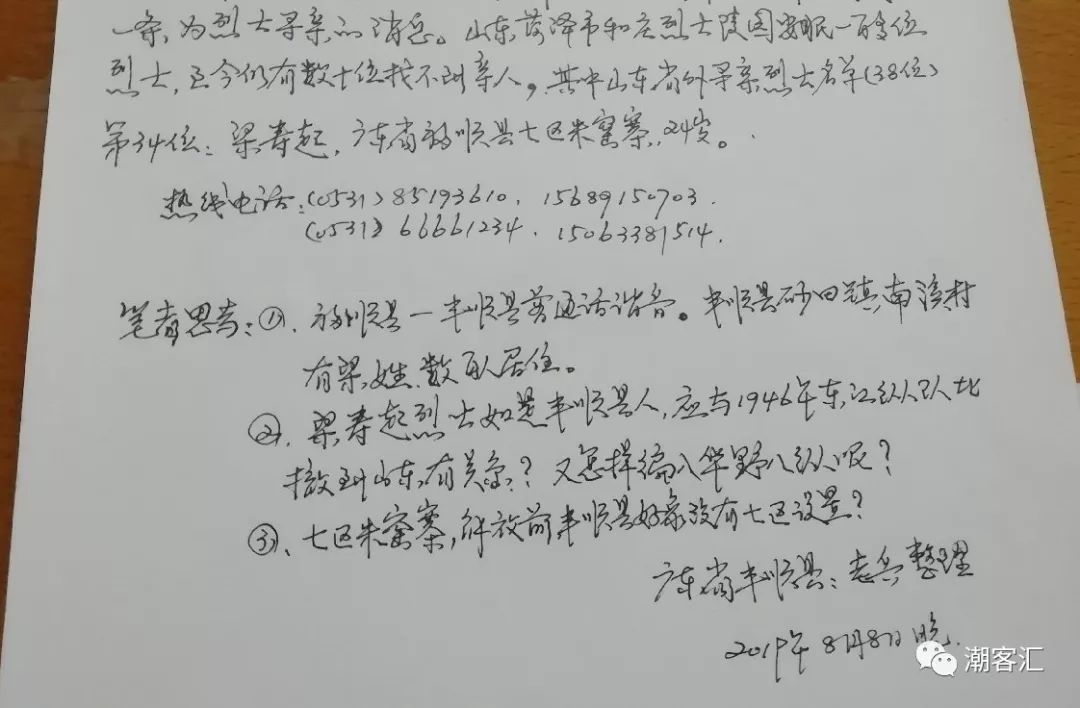 一条,为烈士寻亲的消息。山东菏泽市和庄烈士陵园安眠一百余位
烈士,至今仍有数十位找不到亲人,其中山东省外寻亲烈士名单(38位)
第34位:梁寿起,广东省 顺县七区朱窑寨,24岁。
热线电话:(0531)85193610、15689150703.
(0531)66661234、15063381514.
笔者思考:①、 顺县一丰顺县普通话谐音。丰顺县砂田镇南溪村
有梁姓数百人居住。
②、梁寿起烈士如是丰顺县人,应与1946年东江纵队北
撤到山东有关系?又怎样编入华野八纵呢?
③、七区朱窑寨,解放前丰顺县好象没有七区设置?
广东省丰顺县:志兵整理
2019年8月8日晚.
潮客汇